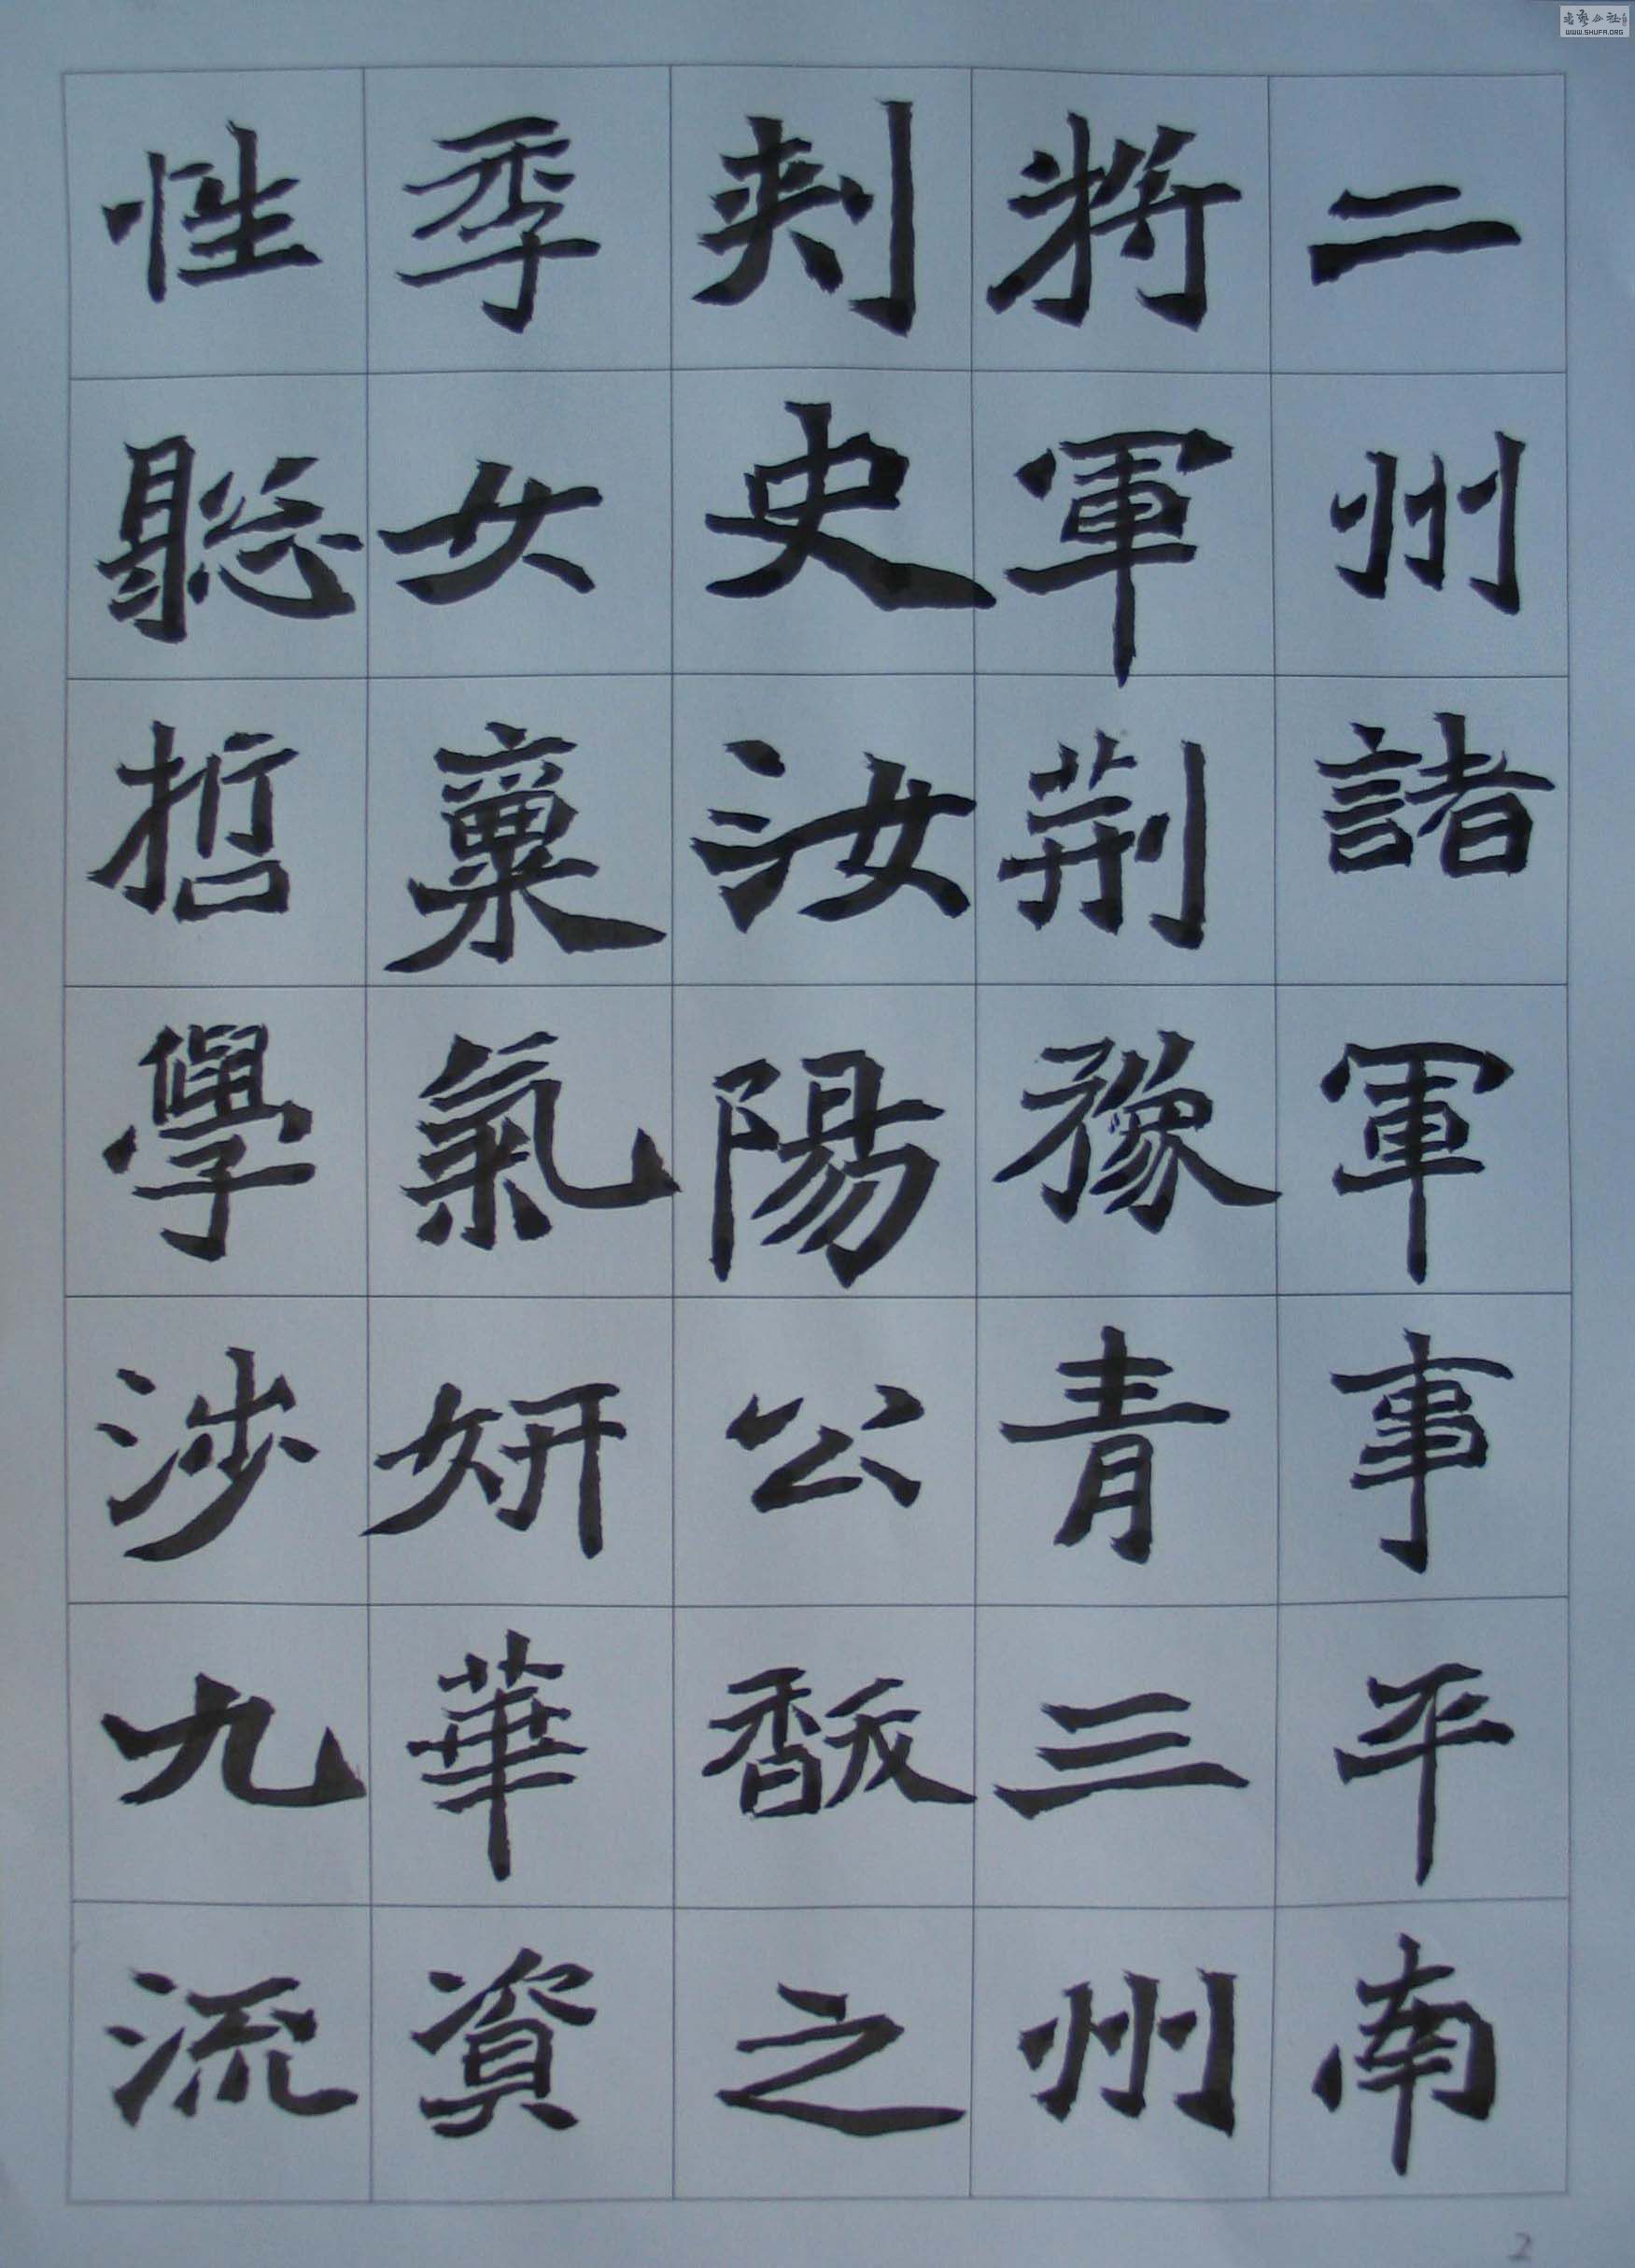 二州諸軍事平南
將軍荆豫青三州
刺史汝陽公馥之
季女稟氣妍華資
性聡哲學涉九流
书艺公社
WWW.SHUFA.ORG
2